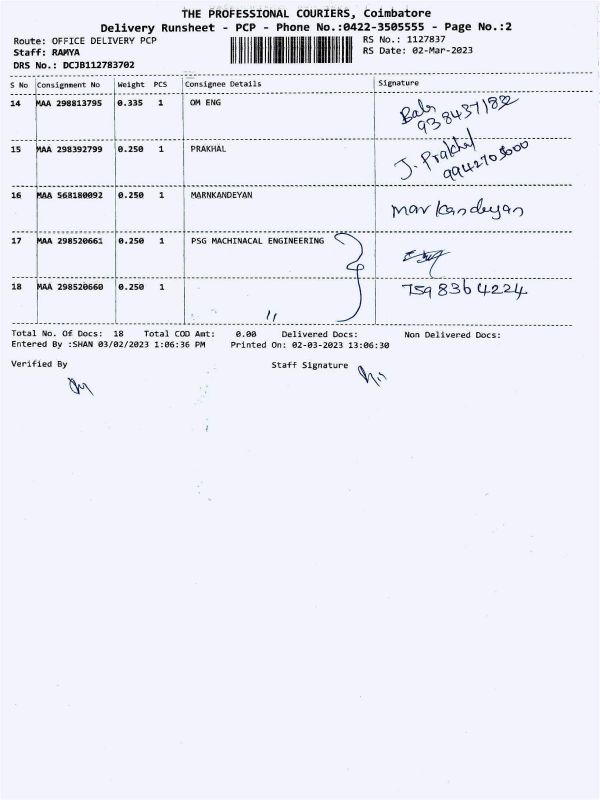 THE PROFESSIONAL COURIERS, Coimbatore
Delivery Runsheet - PCP - Phone No.:0422-3505555 - Page No.:2
Route: OFFICE DELIVERY PCP
Staff: RAMYA
DRS No.: DCJB112783702
RS No.: 1127837
RS Date: 02-Mar-2023
S No Consignment No Weight PCS Consignee Details Signature
14 MAA 298813795 0.335 1 OM ENG
9384371832
15 MAA 298392799 0.250 1 PRAKHAL J. Prakhal
9942705000
16 MAA 568180092 0.250 1 MARNKANDEYAN markandeyan
17 MAA 298520661 0.250 1 PSG MACHINACAL ENGINEERING
18 MAA 298520660 0.250 1 " 7598364224
Total No. Of Docs: 18 Total COD Amt: 0.00 Delivered Docs: Non Delivered Docs:
Entered By :SHAN 03/02/2023 1:06:36 PM Printed On: 02-03-2023 13:06:30
Verified By Staff Signature